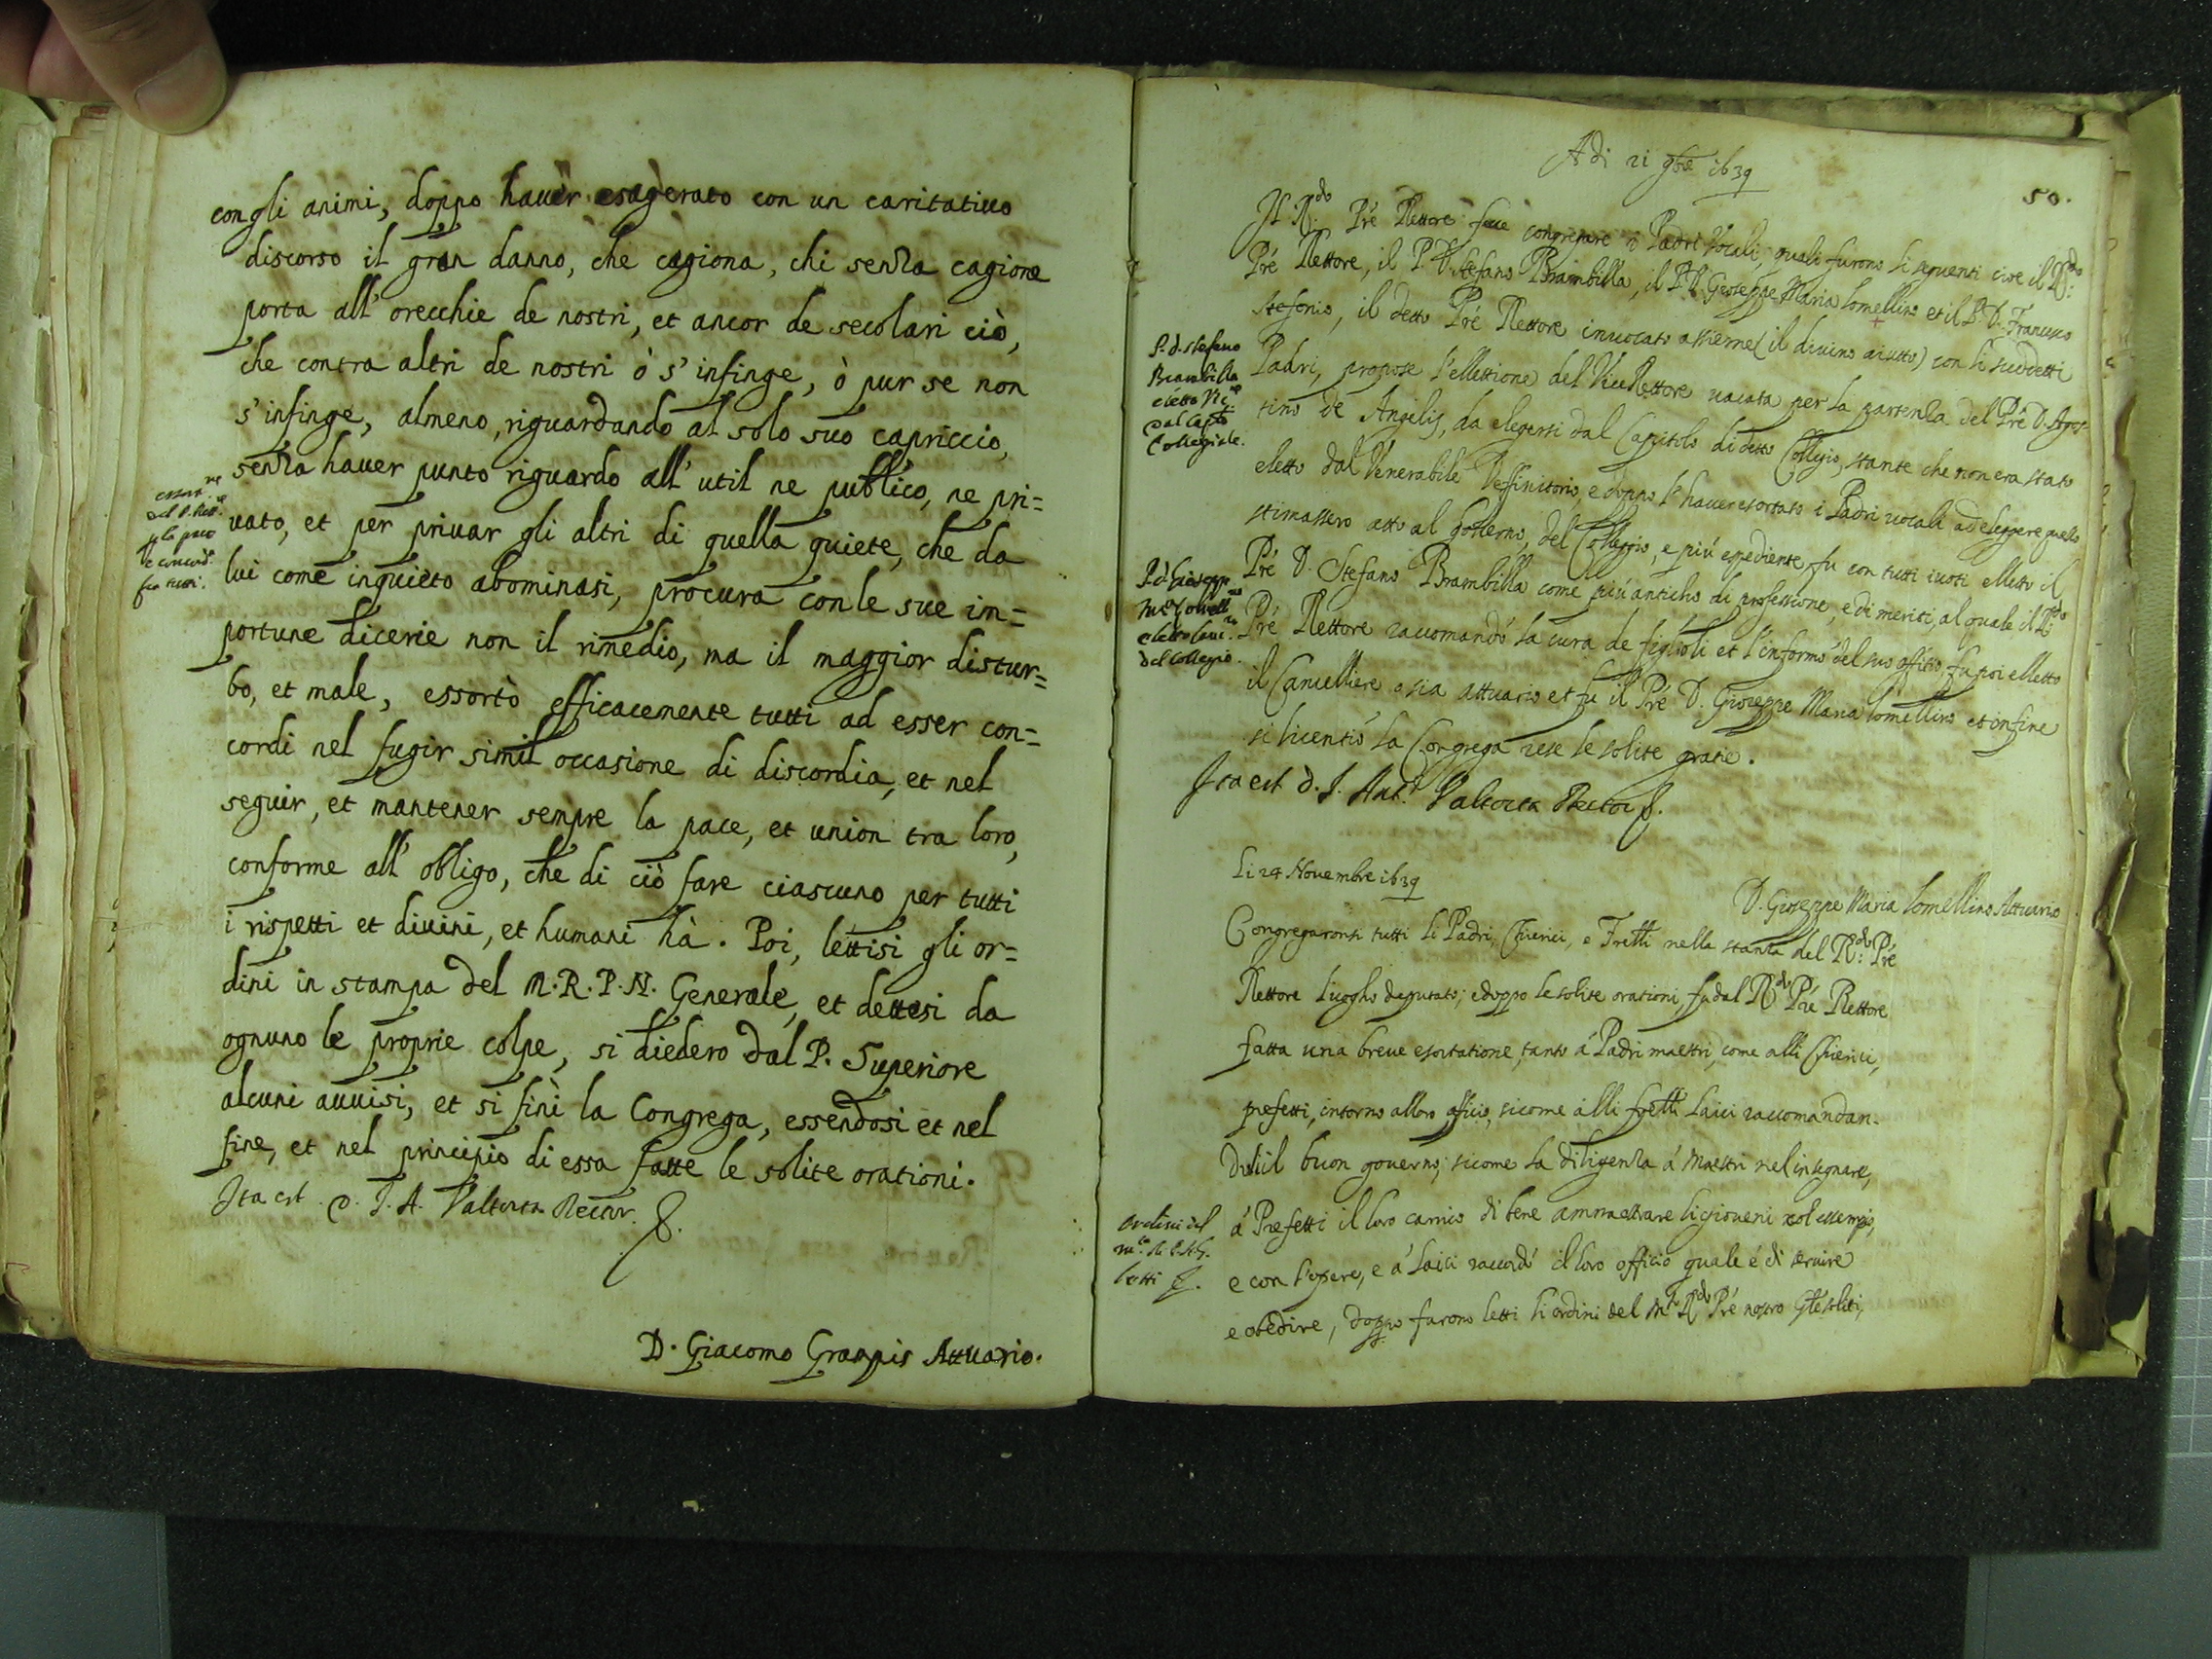 con gli animi, doppo hauer esagerato con un caritatiuo
discorso il gran danno, che cagiona, chi senza cagione
porta all' orecchie de nostri, et ancor de secolari ciò,
che contra altri de nostri ò s' infinge, ò pur se non
s' infinge, almeno, riguardando al solo suo capriccio,
senza hauer punto riguardo all' util ne publico, ne pri=
uato, et per priuar gli altri di quella quiete, che da
lui come inquieto abominasi, procura con le sue im=
portune dicerie non il rimedio, ma il maggior distur=
bo, et male, essortò efficacemente tutti ad esser con=
cordi nel fugir simil occasione di discordia, et nel
seguir, et mantener sempre la pace, et union tra loro,
conforme all' obligo, che di ciò fare ciascuno per tutti
i rispetti et diuini, et humani hà. Poi, lettisi gli or=
dini in stampa del M.R.P.N. Generale, et dettesi da
ognuno le proprie colpe, si diedero dal P. Superiore
alcuni auuisi, et si finì la Congrega, essendosi et nel
fine, et nel principio di essa fatte le solite orationi.
Ita est D. J. A. Valtorta Rector.
D. Giacomo Grappis Attuario.
del P. Rett.
fra tutti.
50.
Adi 21 9bre 1639
Il R.do Pre Rettore fece congregare i Padri Vocali, quali furono li seguenti cioe il R.do
Pre Rettore, il P. D. Stefano Brambilla, il P. D. Gioseppe Maria Lomellino et il P. D. Francesco
Stefonio, il detto Pre Rettore inuocato assieme (il diuino aiutto) con li suddetti
Padri, propose l'ellettione del Vice Rettore uacata per la partenza del Pre D. Agos-
tino de Angelis, da elegersi dal Capitolo di detto Collegio, stante che non era stato
eletto dal Venerabile Deffinitorio, e doppo l' hauer esortato i Padri uocali ad eleggere quello
stimassero atto al gouerno, del Colleggio, e più espediente, fu con tutti i uoti elletto il
Pre D. Stefano Brambilla come più anticho di professione, e di meriti, al quale il R.do
Pre Rettore raccomandò la cura de figlioli et l'informò del suo offitio, fu poi elletto
il Cancelliere o sia attuario et fu il Pre D. Gioseppe Maria Lomellino et infine
si licentiò la Congrega rese le solite gratie.
Ita est D. J. Ant. Valtorta Rector
P. d. Stefano
Brambilla
eletto Vice
dal Capto
Collegiale.
P. d. Gioseppe
Ma Lomell.no
eletto Canc.re
del Collegio.
D. Gioseppe Maria Lomellino Attuario
Li 24 Nouembre 1639
Congregaronsi tutti li Padri, Chierici, e Fretti nella stanza del R.do Pre
Rettore luogho deputato; e doppo le solite orationi, fu dal R.do Pre Rettore
fatta una breue esortatione, tanto à Padri maestri, come alli Chierici,
prefetti, intorno al loro officio, sicome alli fretti Laici raccomandan-
doli il buon gouerno, sicome la diligenza à Maestri nel insegnare,
à Prefetti il loro carico di bene ammaestrare li gioueni col essempio,
e con l'opere, e à Laici raccordò il loro officio quale é di seruire
e obedire, doppo furono letti li ordini del M.to R.do Pre nostro Gle soliti,
ordini del
m.to R. P. N. G.
letti